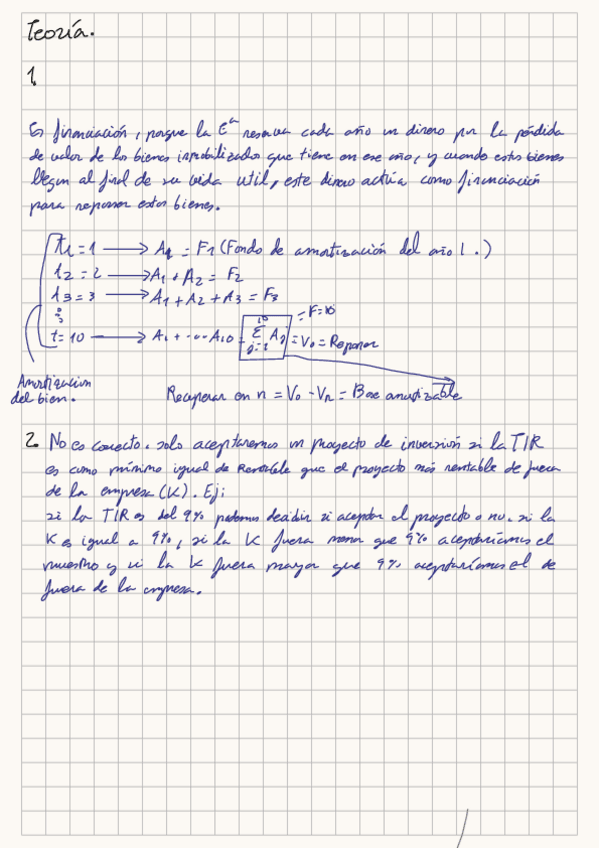 Teoría.
1.
Es financiación, porque la Eª reserva cada año un dinero por la pérdida
de valor de los bienes inmobilizados que tiene en ese año, y cuando estos bienes
llegan al final de su vida util, este dinero actúa como financiación
para reponer estos bienes.
t1 = 1 → A1 = F1 (Fondo de amortización del año 1.)
t2 = 2 → A1 + A2 = F2
t3 = 3 → A1 + A2 + A3 = F3
t = 10 → A1 + ... A10 = Σ = V0 = Reponer
= F=10
Amortización
del bien.
Recuperar en n = V0 - Vn = Base amortizable
2. No es correcto. solo aceptaremos un proyecto de inversión si la TIR
es como mínimo igual de Rentable que el proyecto más rentable de fuera
de la empresa (K). Ej:
si la TIR es del 9% podemos decidir si aceptar el proyecto o no. si la
K es igual a 9%, si la K fuera menor que 9% aceptaríamos el
nuestro y si la K fuera mayor que 9% aceptaríamos el de
fuera de la empresa.